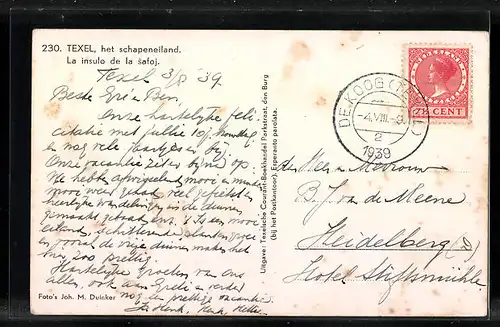 230. TEXEL, het schapeneiland.
La insulo de la ŝafoj.
Texel 3/8 '39
Beste Eri en Ben,
Onze hartelijke feli-
citatie met jullie 10j.
en nog vele jaartjes er bij.
Onze vacantie zit er bijna op.
We hebben afwisselend mooi en minder
mooi weer gehad, veel gefietst en
heerlijke wandelingen in de duinen
gemaakt gebaad enz. 't Is een mooi
eiland, schitterende
en vooral de vrije duinen maken het
hier zoo prettig.
Hartelijke groeten van ons
allen, ook aan en verder
nog een prettige vacantie
Henk,
Foto's Joh. M. Duinker
Uitgave: Texelsche Courant-Boekhandel Parkstraat, den Burg
(bij het Postkantoor). Esperanto parolata.
DE KOOG (TEXEL)
-4.VIII.-9
2
1939
7½ CENT
den Heer en Mevrouw
B. J. van de Meene
Heidelberg (D)
Hotel Stiftsmühle